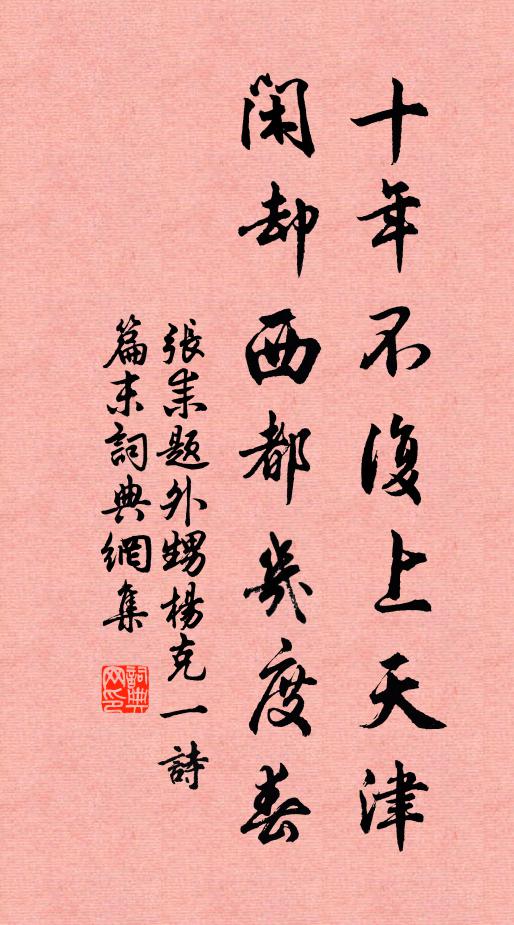 十年不復上天津
閑却西都幾度春
張耒題外甥楊克一詩
篇末詞典網集
詞典網印